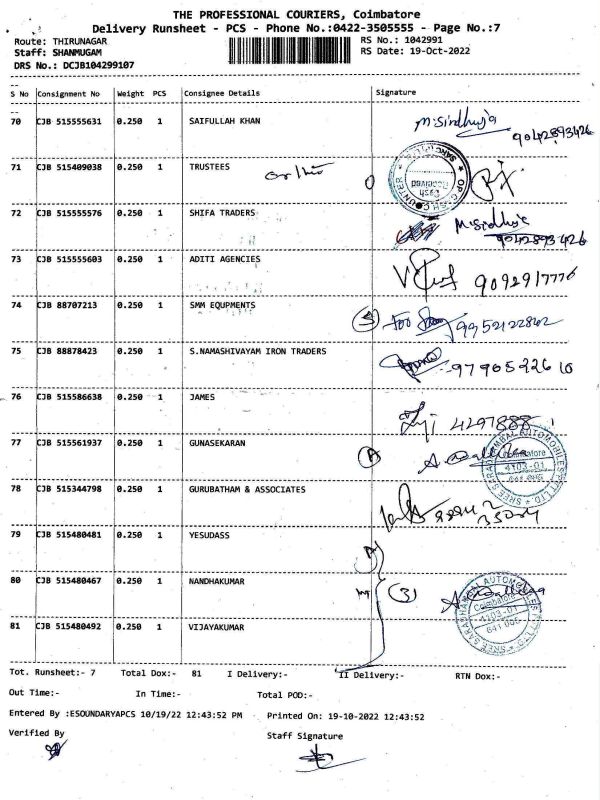 THE PROFESSIONAL COURIERS, Coimbatore
Delivery Runsheet - PCS - Phone No.:0422-3505555 - Page No.:7
Route: THIRUNAGAR RS No.: 1042991
Staff: SHANMUGAM RS Date: 19-Oct-2022
DRS No.: DCJB104299107
S No Consignment No Weight PCS Consignee Details Signature
70 CJB 515555631 0.250 1 SAIFULLAH KHAN M.Sindhuja
9042893426
71 CJB 515409038 0.250 1 TRUSTEES
72 CJB 515555576 0.250 1 SHIFA TRADERS M.Sidhuja
9042893426
73 CJB 515555603 0.250 1 ADITI AGENCIES 9092917776
74 CJB 88707213 0.250 1 SMM EQUPMENTS (3) For 9952122862
75 CJB 88878423 0.250 1 S.NAMASHIVAYAM IRON TRADERS
76 CJB 515586638 0.250 1 JAMES 4297888
77 CJB 515561937 0.250 1 GUNASEKARAN
SREE SARADHAMBAL AUTOMOBILES PVT LTD
Coimbatore
4103-01
78 CJB 515344798 0.250 1 GURUBATHAM & ASSOCIATES
79 CJB 515480481 0.250 1 YESUDASS
80 CJB 515480467 0.250 1 NANDHAKUMAR (3)
SREE SARADHAMBAL AUTOMOBILES PVT LTD
Coimbatore
4103-01
81 CJB 515480492 0.250 1 VIJAYAKUMAR
Tot. Runsheet:- 7 Total Dox:- 81 I Delivery:- II Delivery:- RTN Dox:-
Out Time:- In Time:- Total POD:-
Entered By :ESOUNDARYAPCS 10/19/22 12:43:52 PM Printed On: 19-10-2022 12:43:52
Verified By Staff Signature